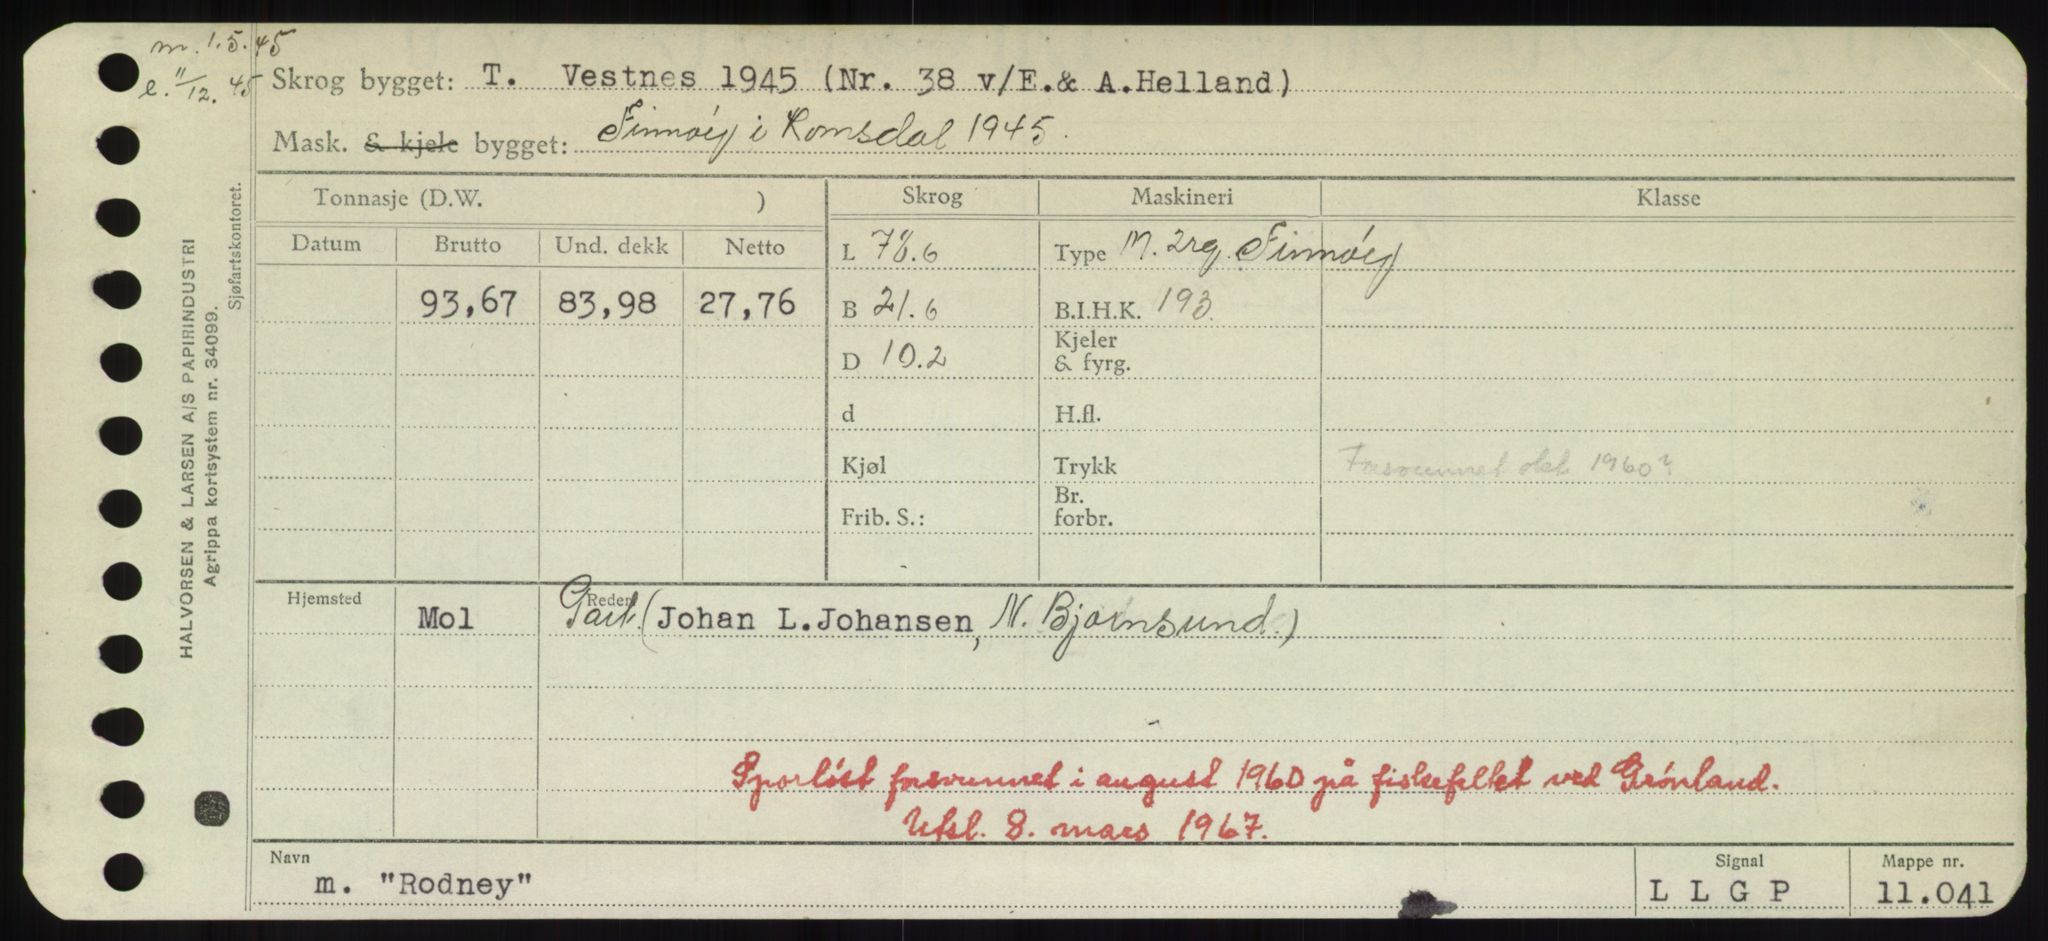 m. 1.5.45
e. 11/12. 45
Skrog bygget: T. Vestnes 1945 (Nr. 38 v/E.& A.Helland)
Mask. & kjele bygget: Finnøy i Romsdal 1945.
Tonnasje (D.W. )
Skrog
Maskineri
Klasse
Datum
Brutto
Und. dekk
Netto
L 78.6
Type M. 2rg. Finnøy
93,67
83,98
27,76
B 21.6
B.I.H.K. 193
D 10.2
Kjeler
& fyrg.
d
H.fl.
Kjøl
Trykk
Forsvunnet okt 1960?
Frib. S.:
Br.
forbr.
Hjemsted
Mol
Reder
Part. (Johan L.Johansen, N. Bjørnsund.)
Sporløst forsvunnet i august 1960 på fiskefeltet ved Grønland.
Utsl. 8. mars 1967.
Navn
m. "Rodney"
Signal
L L G P
Mappe nr.
11.041
HALVORSEN & LARSEN A/S PAPIRINDUSTRI
Agrippa kortsystem nr. 34099.
Sjøfartskontoret.